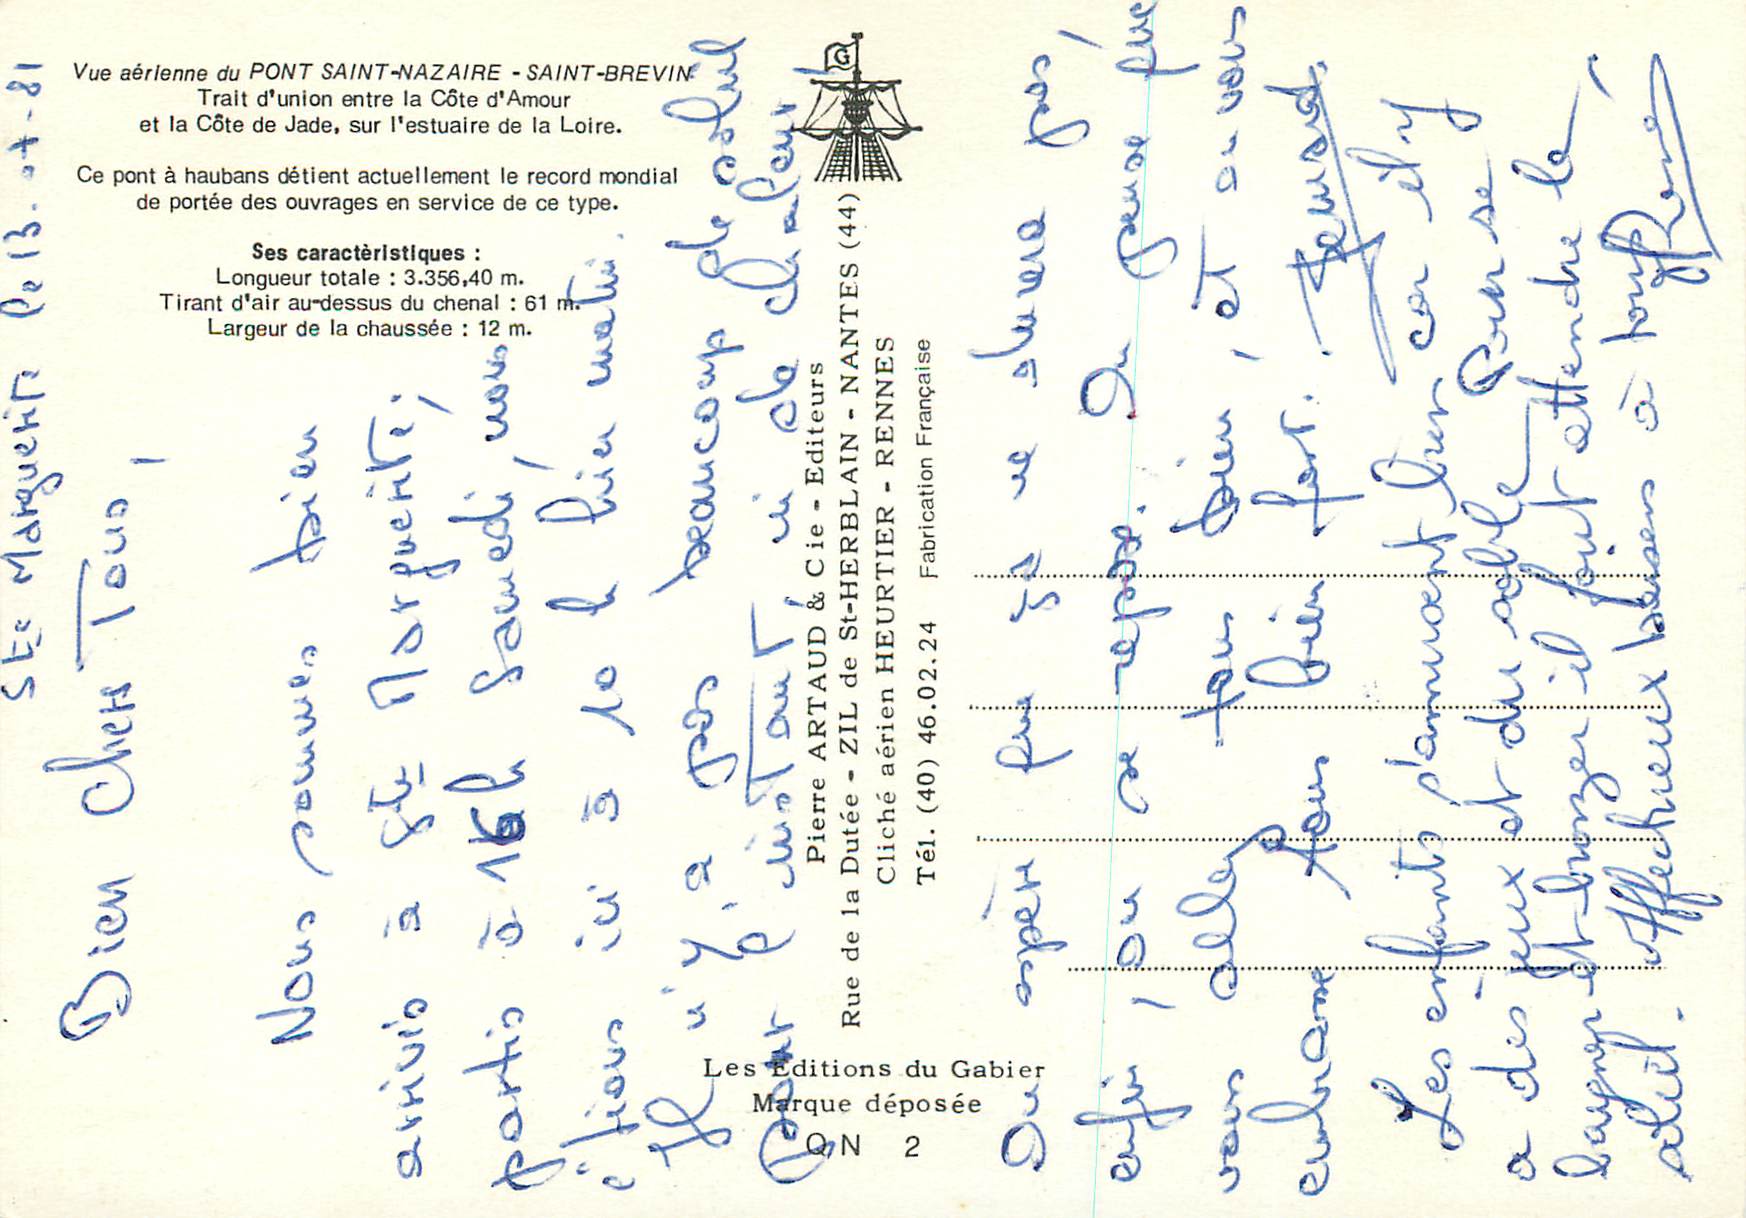 Vue aérienne du PONT SAINT-NAZAIRE - SAINT-BREVIN
Trait d'union entre la Côte d'Amour
et la Côte de Jade, sur l'estuaire de la Loire.
Ce pont à haubans détient actuellement le record mondial
de portée des ouvrages en service de ce type.
Ses caractèristiques :
Longueur totale : 3.356,40 m.
Tirant d'air au-dessus du chenal : 61 m.
Largeur de la chaussée : 12 m.
G
Pierre ARTAUD & Cie - Editeurs
Rue de la Dutée - ZIL de St-HERBLAIN - NANTES (44)
Cliché aérien HEURTIER - RENNES
Tél. (40) 46.02.24 Fabrication Française
Les Editions du Gabier
Marque déposée
QN 2
Ste Marguerite le 13-07-81
Bien chers Tous,
Nous sommes bien
arrivés à Ste Marguerite,
partis à 16h Samedi, nous
étions ici à 10 h hier matin.
Il n'y a pas beaucoup de soleil
pour l'instant, ni de chaleur
On espère que ça ne durera pas,
enfin, on se repose. On pense que
vous allez tous bien, et on vous
embrasse tous bien fort.
Les enfants s'amusent bien car il y
a des jeux et du sable. Pour se
baigner et bronzer il faut attendre le
soleil. affectueux baisers à tous René